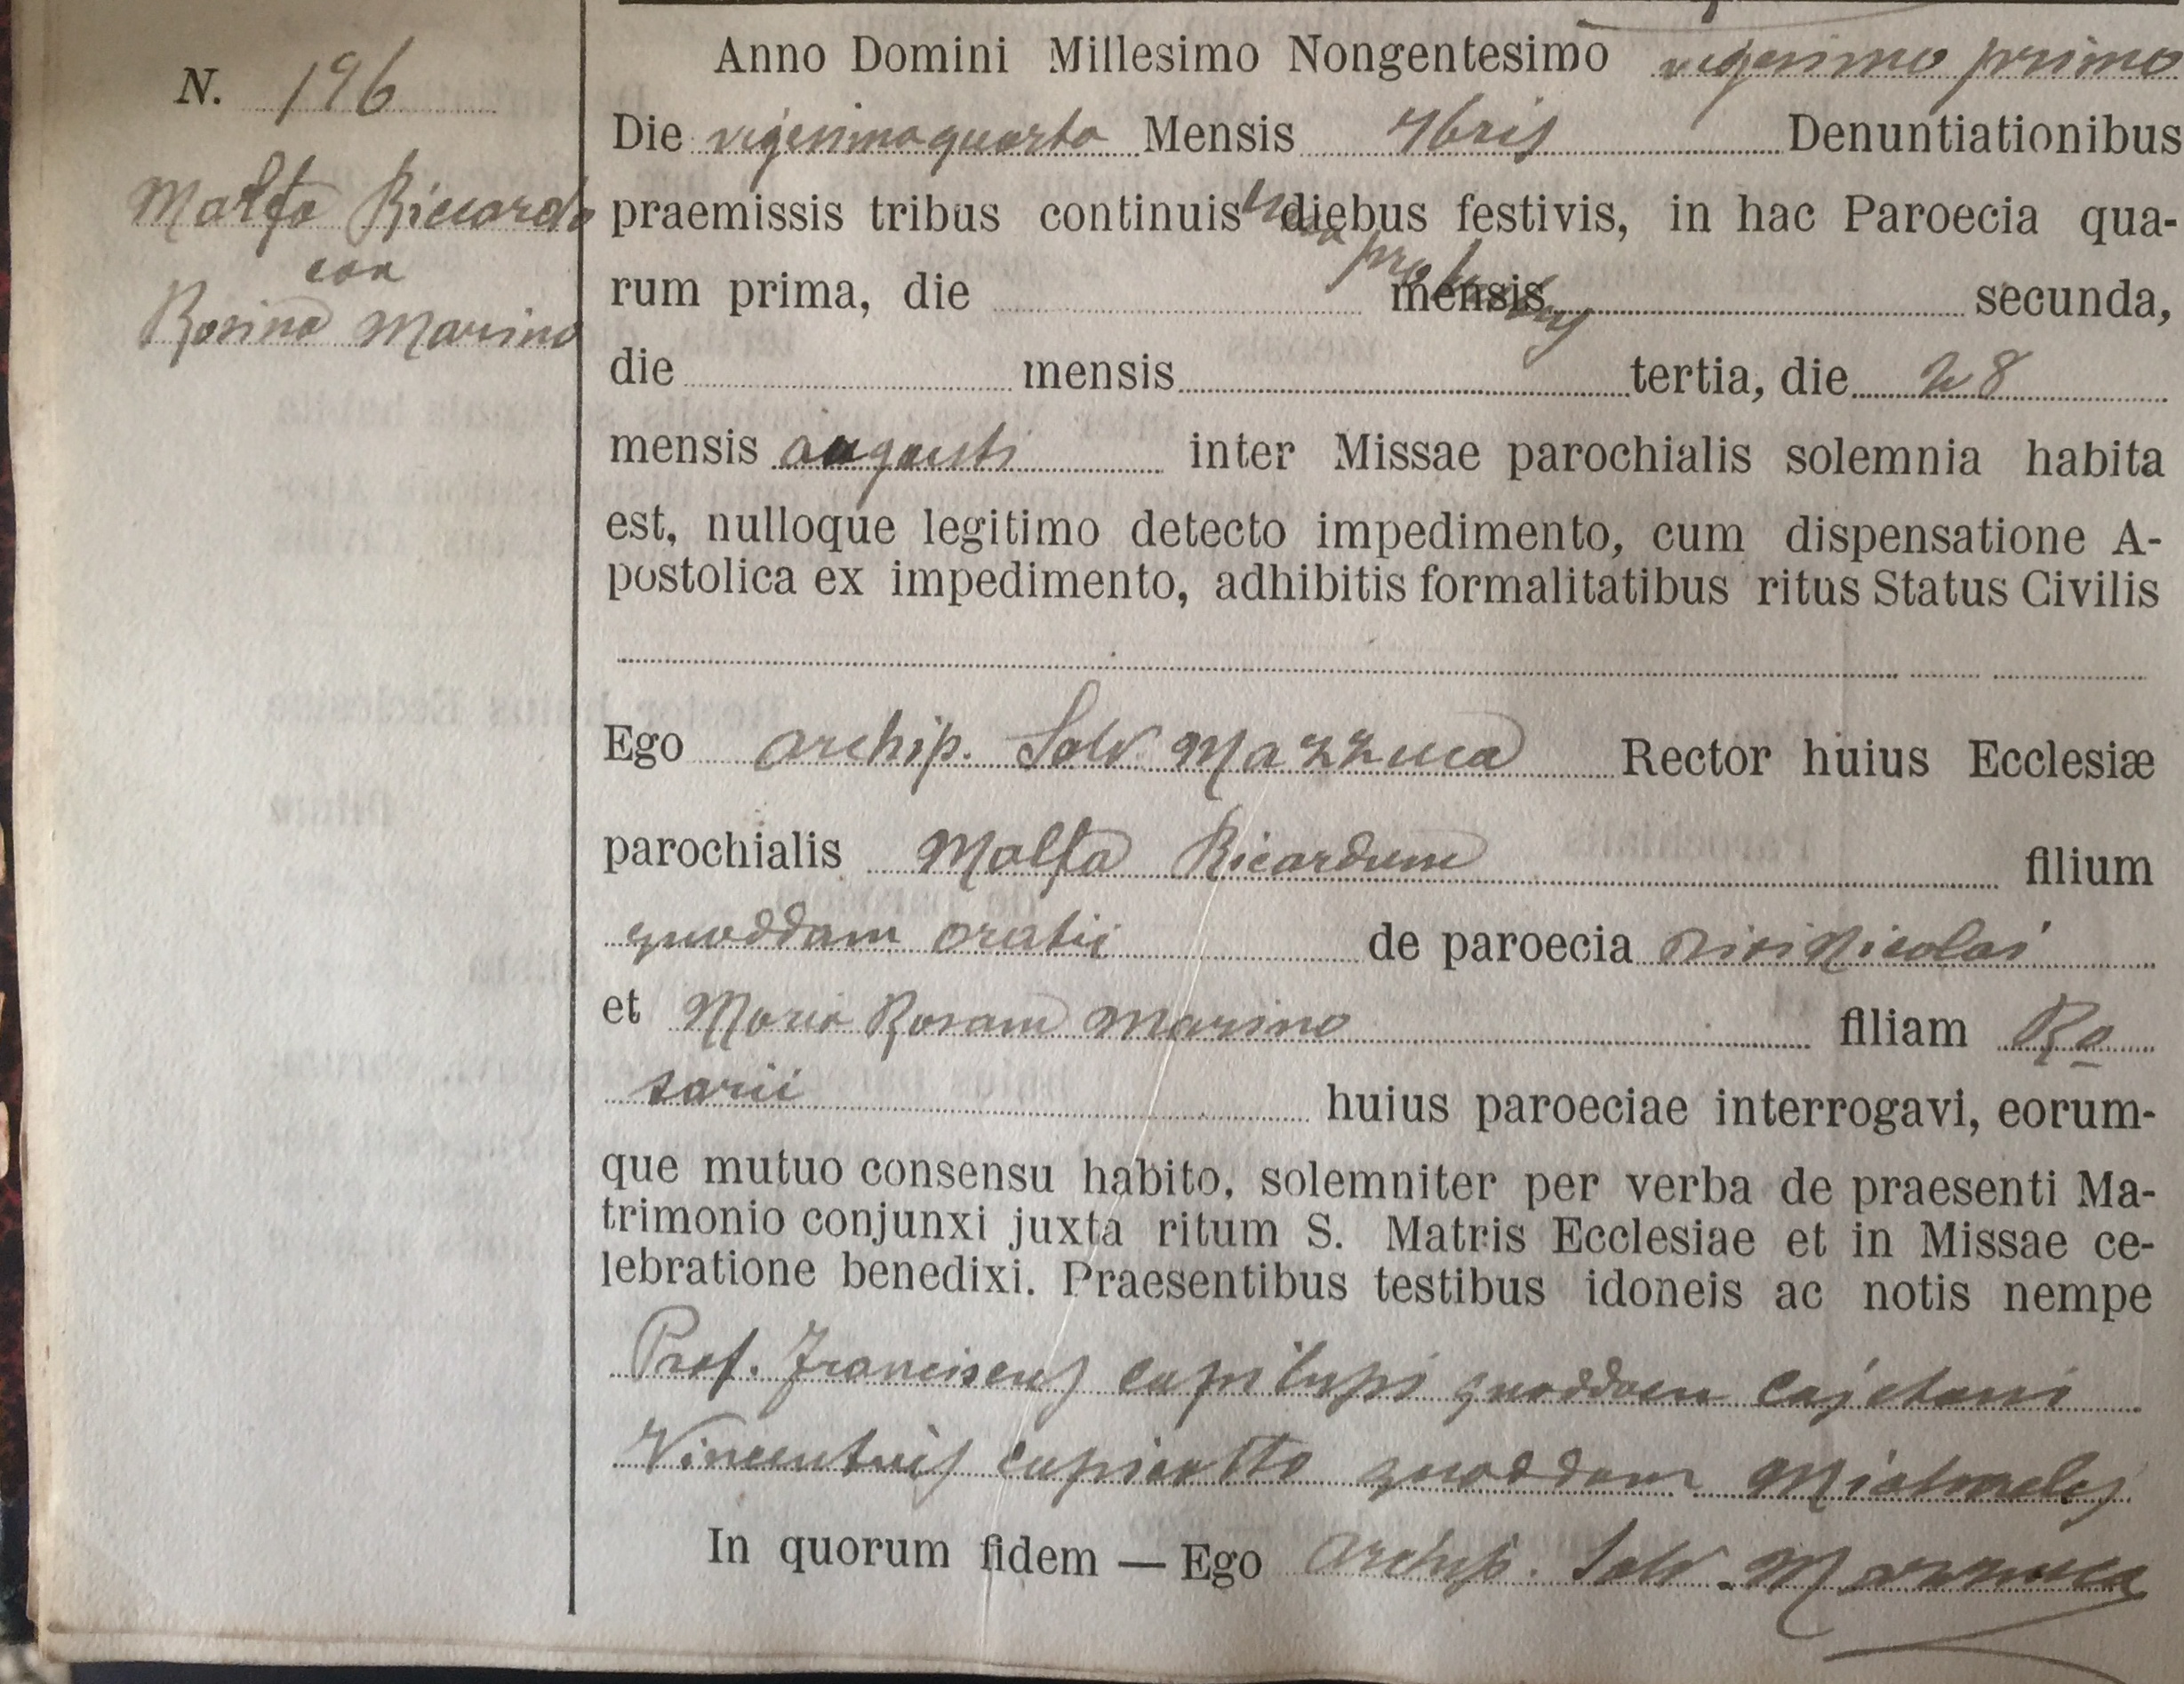 N. 196
Malfa Riccardo
con
Rosina Marino
Anno Domini Millesimo Nongentesimo vigesimo primo
Die vigesimoquarto Mensis 7bris Denuntiationibus
praemissis tribus continuis diebus festivis, in hac Paroecia qua-
rum prima, die mensis secunda,
die mensis tertia, die 28
mensis augusti inter Missae parochialis solemnia habita
est, nulloque legitimo detecto impedimento, cum dispensatione A-
postolica ex impedimento, adhibitis formalitatibus ritus Status Civilis
Ego archip. Salv. Mazzuca Rector huius Ecclesiæ
parochialis Malfa Ricardum filium
quoddam oratii de paroecia Nicolai
et Maria Rosam Marino filiam Ro
sarii huius paroeciae interrogavi, eorum-
que mutuo consensu habito, solemniter per verba de praesenti Ma-
trimonio conjunxi juxta ritum S. Matris Ecclesiae et in Missae ce-
lebratione benedixi. Praesentibus testibus idoneis ac notis nempe
Prof. Franciscus capilupi quoddam cajetani
Vincentius quoddam Michaelis
In quorum fidem — Ego Archip. Salv. Mazzuca